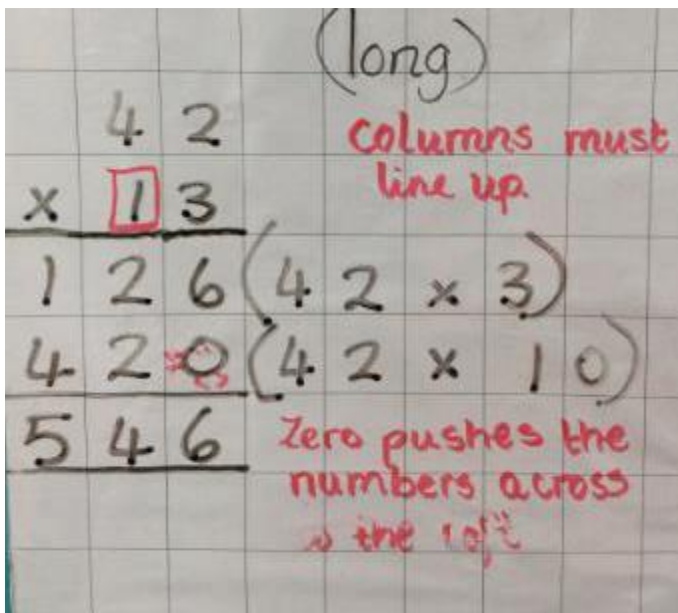 (long)
4 2
columns must
line up.
x 1 3
1 2 6 (4 2 x 3)
4 2 0 (4 2 x 1 0)
5 4 6
Zero pushes the
numbers across
the left